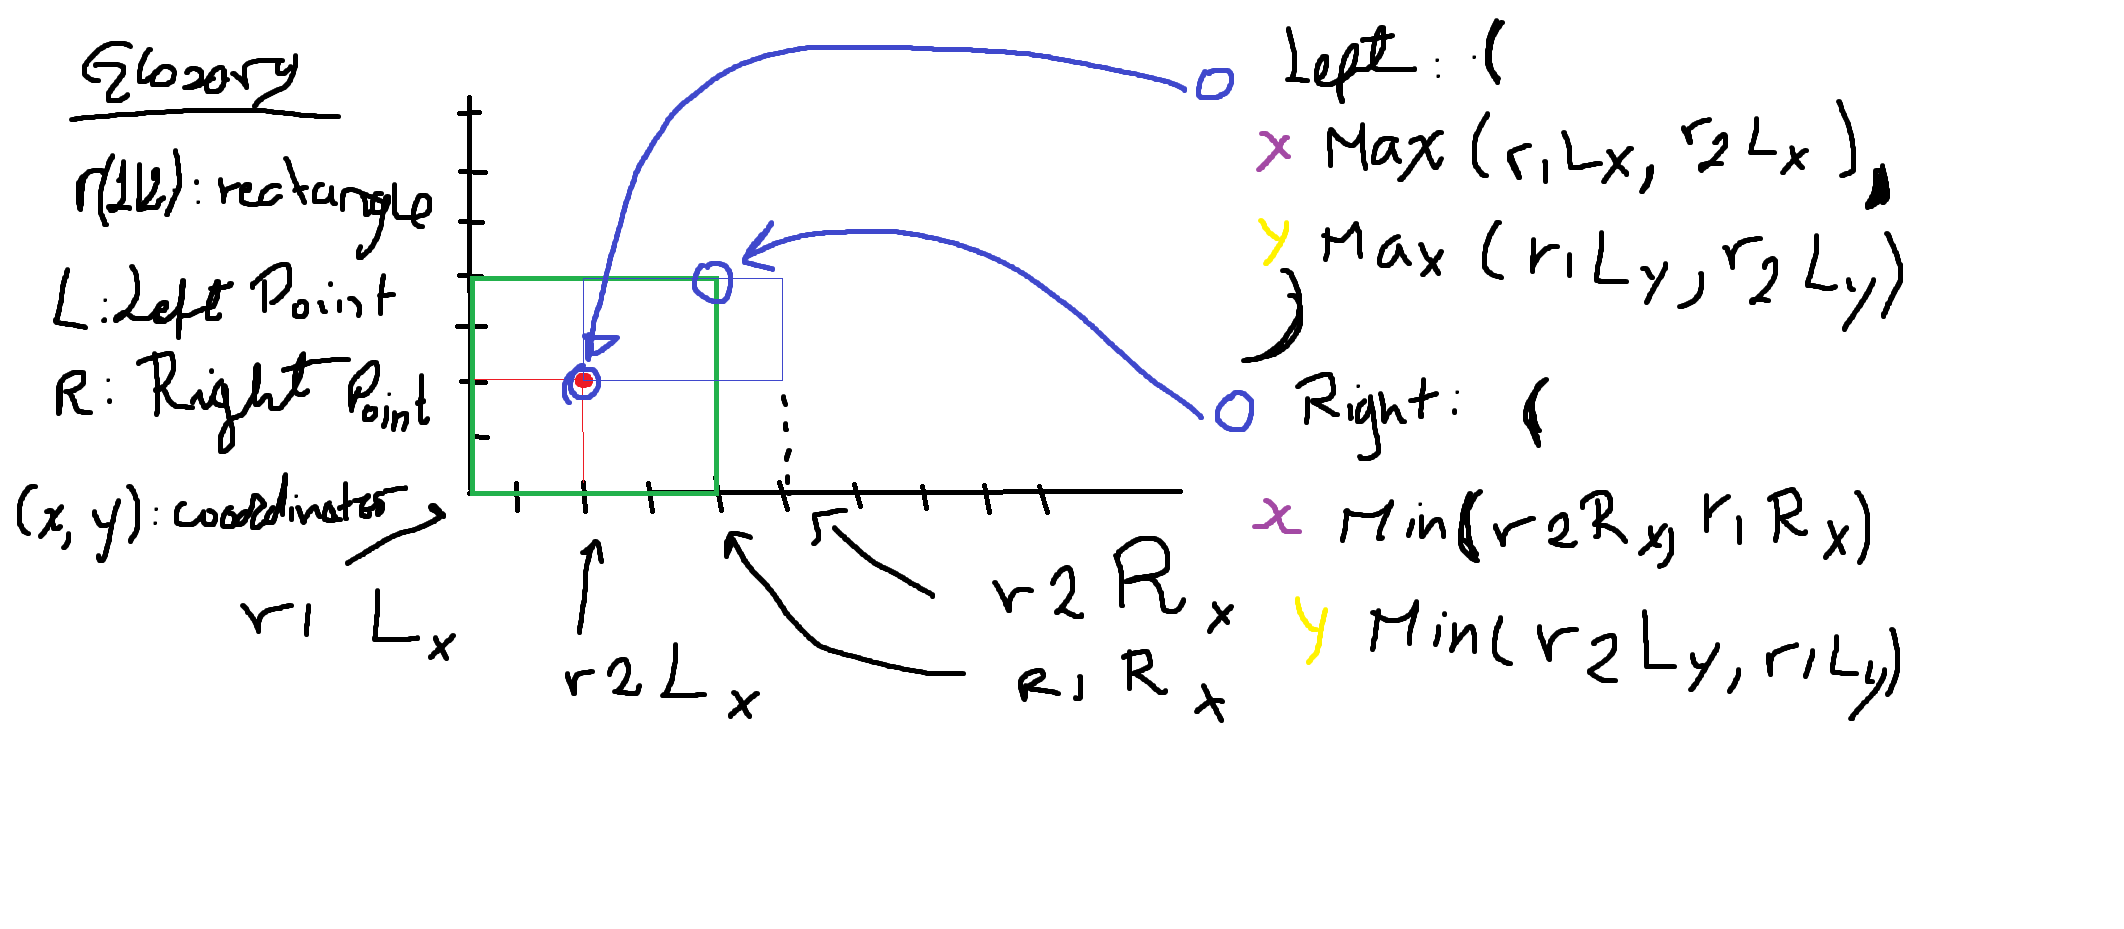 Glosory
r(1|2): rectangle
L: Left Point
R: Right Point
(x, y): coordinates
r1 Lx
r2 Lx
r2 Rx
R1 Rx
Left: (
x Max (r1Lx, r2Lx),
y Max (r1Ly, r2Ly)
)
Right: (
x Min(r2Rx, r1Rx)
y Min(r2Ly, r1Ly)